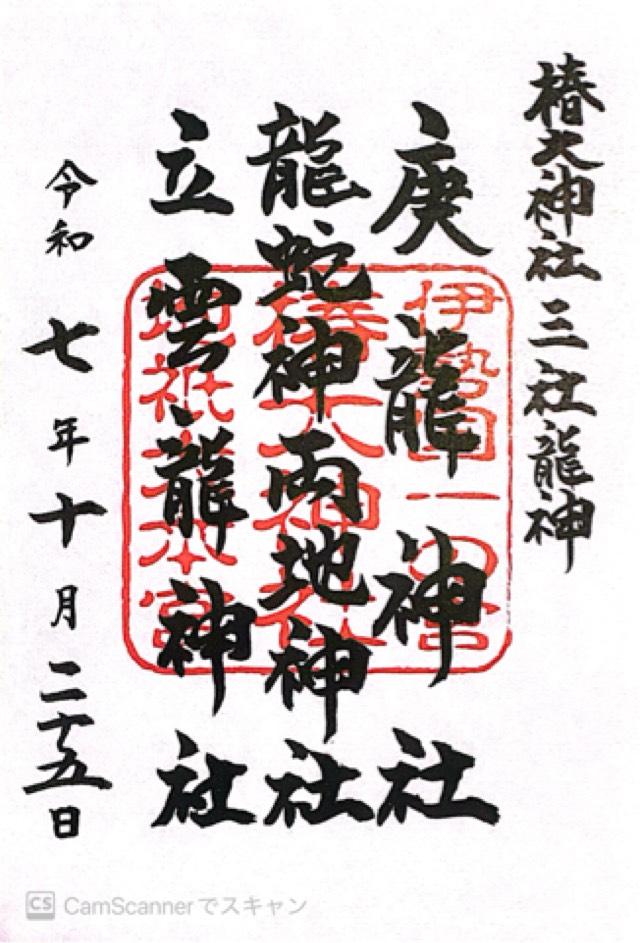 椿大神社三社龍神
庚龍神社
龍蛇神両地神社
立雲龍神社
令和七年十月二十五日
伊勢国一の宮
椿大神社
地祇大本宮
CS CamScannerでスキャン